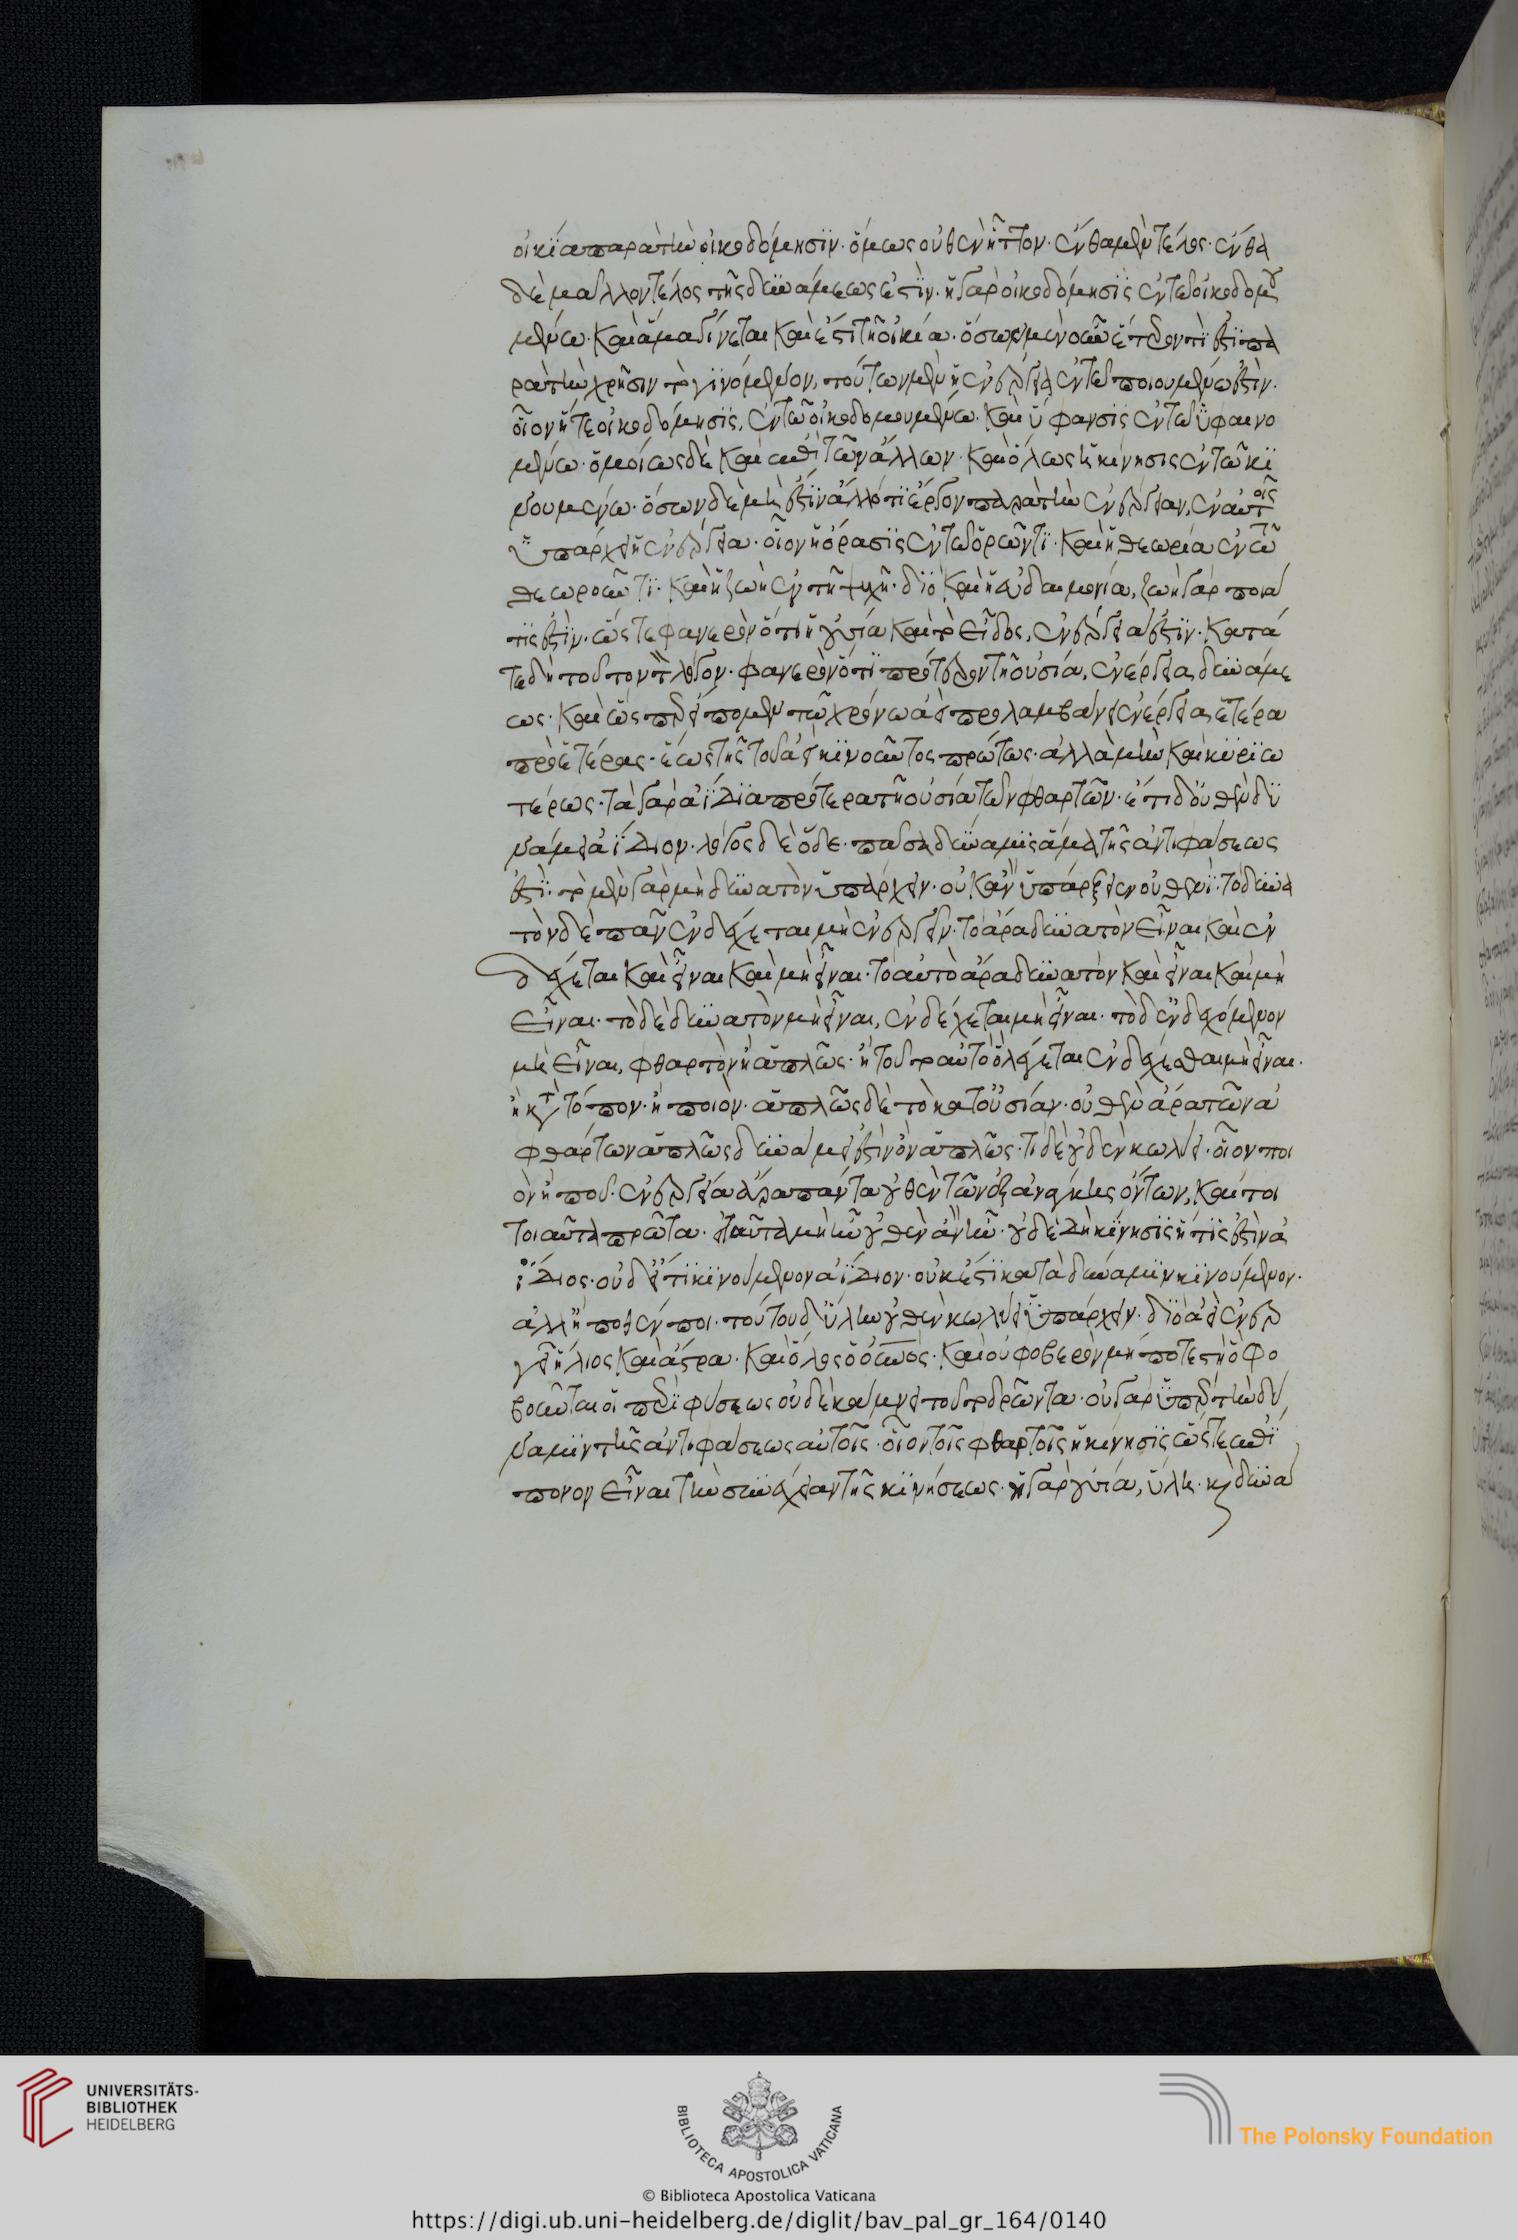 οἰκία παρὰ τὴν οἰκοδόμησιν. ὅμως οὐθὲν ἧττον. ἔνθα μὲν τέλος. ἔνθα
δὲ μᾶλλον τέλος τῆς δυνάμεως ἐστὶν. ἡ γὰρ οἰκοδόμησις ἐν τῷ οἰκοδομου
μένω. καὶ ἅμα γίνεται καὶ ἔστι τῇ οἰκία. ὅσων μὲν οὖν ἕτερον τί ἐστι πα
ρὰ τὴν χρῆσιν τὸ γινόμενον, τούτων μὲν ἡ ἐνέργεια ἐν τῷ ποιουμένω ἐστὶν.
οἷον ἥ τε οἰκοδόμησις, ἐν τῶ οἰκοδομουμένω. καὶ ὕφανσις ἐν τῷ ὑφαινο
μένω. ὁμοίως δὲ καὶ ἐπὶ τῶν ἄλλων. καὶ ὅλως ἡ κίνησις ἐν τῶ κι
νουμένω. ὅσων δὲ μή ἐστιν ἄλλό τι ἔργον παρὰ τὴν ἐνέργειαν, ἐν αὐτοῖς
ὑπάρχει ἡ ἐνέργεια. οἷον ἡ ὅρασις ἐν τῷ ὁρῶντι. καὶ ἡ θεωρία ἐν τῶ
θεωροῦντι. καὶ ἡ ζωὴ ἐν τῇ ψυχῇ. διὸ καὶ ἡ εὐδαιμονία, ζωὴ γὰρ ποιά
τίς ἐστὶν. ὥστε φανερὸν ὅτι ἡ οὐσία καὶ τὸ εἶδος, ἐνέργειά ἐστιν. κατά
τε δὴ τοῦτον τ λόγον. φανερὸν ὅτι πρότερον τῇ οὐσία, ἐνέργεια δυνάμε
ως. καὶ ὥσπερ εἴπομεν τῶ χρόνω ἀεὶ προλαμβάνει ἐνέργεια ἑτέρα
πρὸ ἑτέρας. ἕως τῆς τοῦ ἀεὶ κινοῦντος πρώτως. ἀλλὰ μὴν καὶ κυριω
τέρως. τὰ γὰρ ἀΐδια πρότερα τῇ οὐσία τῶν φθαρτῶν. ἔστι δ οὐθὲν δυ
νάμει ἀΐδιον. λόγος δὲ ὅδε. πᾶσα δύναμις ἅμα τῆς ἀντιφάσεως
ἐστὶ. τὸ μὲν γὰρ μὴ δυνατὸν ὑπάρχειν. οὐκ ἂν ὑπάρξειεν οὐθενὶ. τὸ δυνα
τὸν δὲ πᾶν ἐνδέχεται μὴ ἐνεργεῖν. τὸ ἄρα δυνατὸν εἶναι καὶ ἐν
δέχεται καὶ εἶναι καὶ μὴ εἶναι. τὸ αὐτὸ ἄρα δυνατὸν καὶ εἶναι καὶ μὴ
εἶναι. τὸ δὲ δυνατὸν μὴ εἶναι, ἐνδέχεται μὴ εἶναι. τὸ δ ἐνδεχόμενον
μὴ εἶναι, φθαρτὸν ἢ ἁπλῶς. ἢ τοῦτο αὐτὸ ὃ λέγεται ἐνδέχεσθαι μὴ εἶναι.
ἢ κατὰ τόπον. ἢ ποιὸν. ἁπλῶς δὲ τὸ κατ οὐσίαν. οὐθὲν ἄρα τῶν ἀ
φθάρτων ἁπλῶς δυνάμει ἐστὶν ὂν ἁπλῶς. τὶ δὲ οὐδὲν κωλύει. οἷον ποι
ὸν ἢ ποῦ. ἐνεργεία ἄρα πάντα οὐθὲν τῶν ἐξ ἀνάγκης ὄντων, καίτοι
τοιαῦτα πρῶτα. εἰ ταῦτα μὴ ἦν οὐθὲν ἂν ἦν. οὐδὲ δὴ κίνησις ἥ τίς ἐστὶν ἀ
ΐδιος. οὐδ εἴ τι κινούμενον ἀΐδιον. οὐκ ἔστι κατὰ δύναμιν κινούμενον.
ἀλλ ἢ ποθέν ποι. τούτου δ ὕλην οὐθὲν κωλύει ὑπάρχειν. διὸ ἀεὶ ἐνερ
γεῖ ἥλιος καὶ ἄστρα. καὶ ὅλος ὁ οὐρανός. καὶ οὐ φοβερὸν μή ποτε στῇ ὃ φο
βοῦνται οἱ περὶ φύσεως οὐδὲ κάμνει τοῦτο δρῶντα. οὐ γὰρ ὑπὲρ τὴν δύ
ναμιν τῆς ἀντιφάσεως αὐτοῖς. οἷον τοῖς φθαρτοῖς ἡ κίνησις ὥστε ἐπί
πονον εἶναι τὴν συνέχειαν τῆς κινήσεως. ἡ γὰρ οὐσία, ὕλη. καὶ δύνα
UNIVERSITÄTS-
BIBLIOTHEK
HEIDELBERG
BIBLIOTECA APOSTOLICA VATICANA
© Biblioteca Apostolica Vaticana
The Polonsky Foundation
https://digi.ub.uni-heidelberg.de/diglit/bav_pal_gr_164/0140